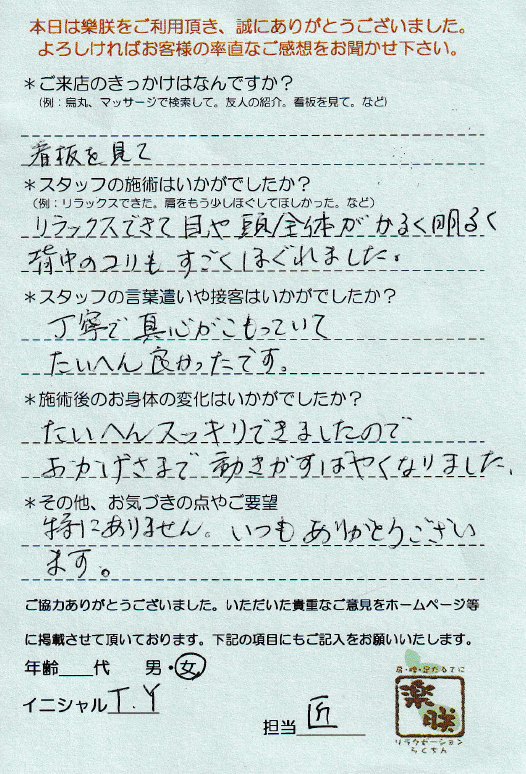 本日は樂朕をご利用頂き、誠にありがとうございました。
よろしければお客様の率直なご感想をお聞かせ下さい。
＊ご来店のきっかけはなんですか？
（例：烏丸、マッサージで検索して。友人の紹介。看板を見て。など）
看板を見て
＊スタッフの施術はいかがでしたか？
（例：リラックスできた。肩をもう少しほぐしてほしかった。など）
リラックスできて目や頭/全体がかるく明るく
背中のコリもすごくほぐれました。
＊スタッフの言葉遣いや接客はいかがでしたか？
丁寧で真心がこもっていて
たいへん良かったです。
＊施術後のお身体の変化はいかがでしたか？
たいへんスッキリできましたので
おかげさまで動きがすばやくなりました。
＊その他、お気づきの点やご要望
特にありません。いつもありがとうござい
ます。
ご協力ありがとうございました。いただいた貴重なご意見をホームページ等
に掲載させて頂いております。下記の項目にもご記入をお願いいたします。
年齢　　代　男・女
イニシャル T.Y
担当 匠
楽朕
リラクゼーション
らくちん